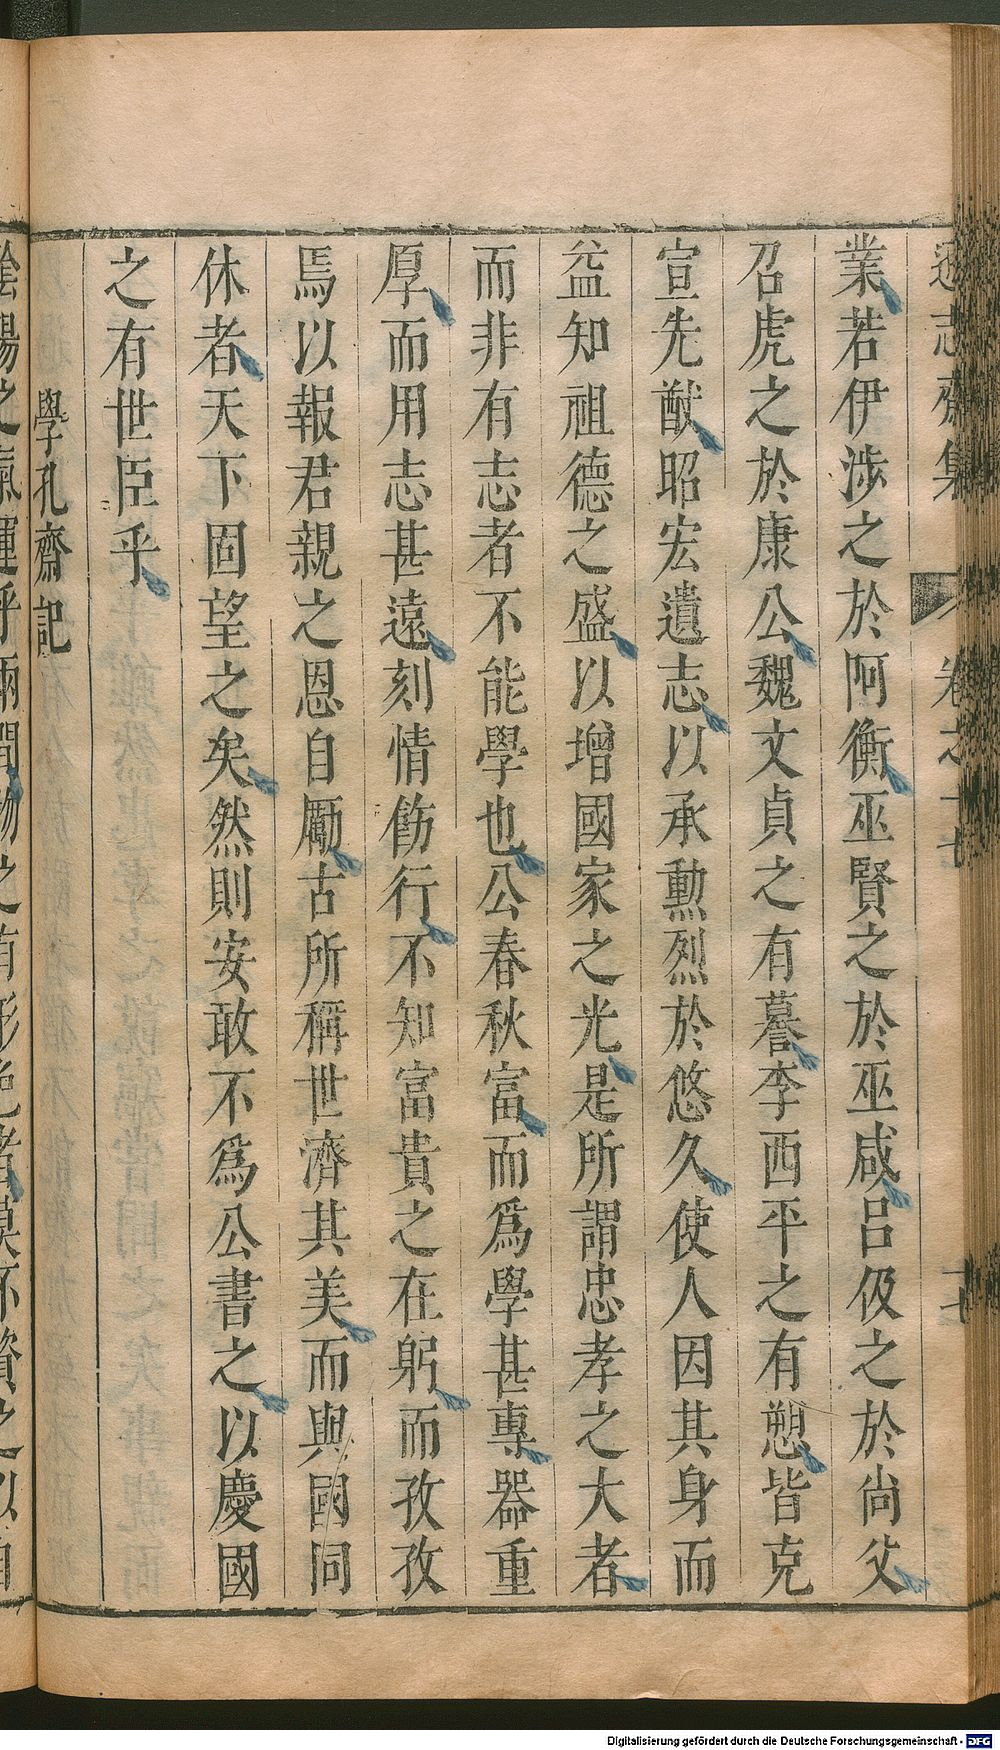 遜志齋集 卷之十七 十七
業若伊涉之於阿衡巫賢之於巫咸呂伋之於尚父
召虎之於康公魏文貞之有謩李西平之有愬皆克
宣先猷昭宏遺志以承勳烈於悠久使人因其身而
益知祖德之盛以增國家之光是所謂忠孝之大者
而非有志者不能學也公春秋富而爲學甚專器重
厚而用志甚遠刻情飭行不知富貴之在躬而孜孜
焉以報君親之恩自勵古所稱世濟其美而與國同
休者天下固望之矣然則安敢不爲公書之以慶國
之有世臣乎
學孔齋記
陰陽之氣運乎兩間物之有形色者莫不資之以自
Digitalisierung gefördert durch die Deutsche Forschungsgemeinschaft - DFG